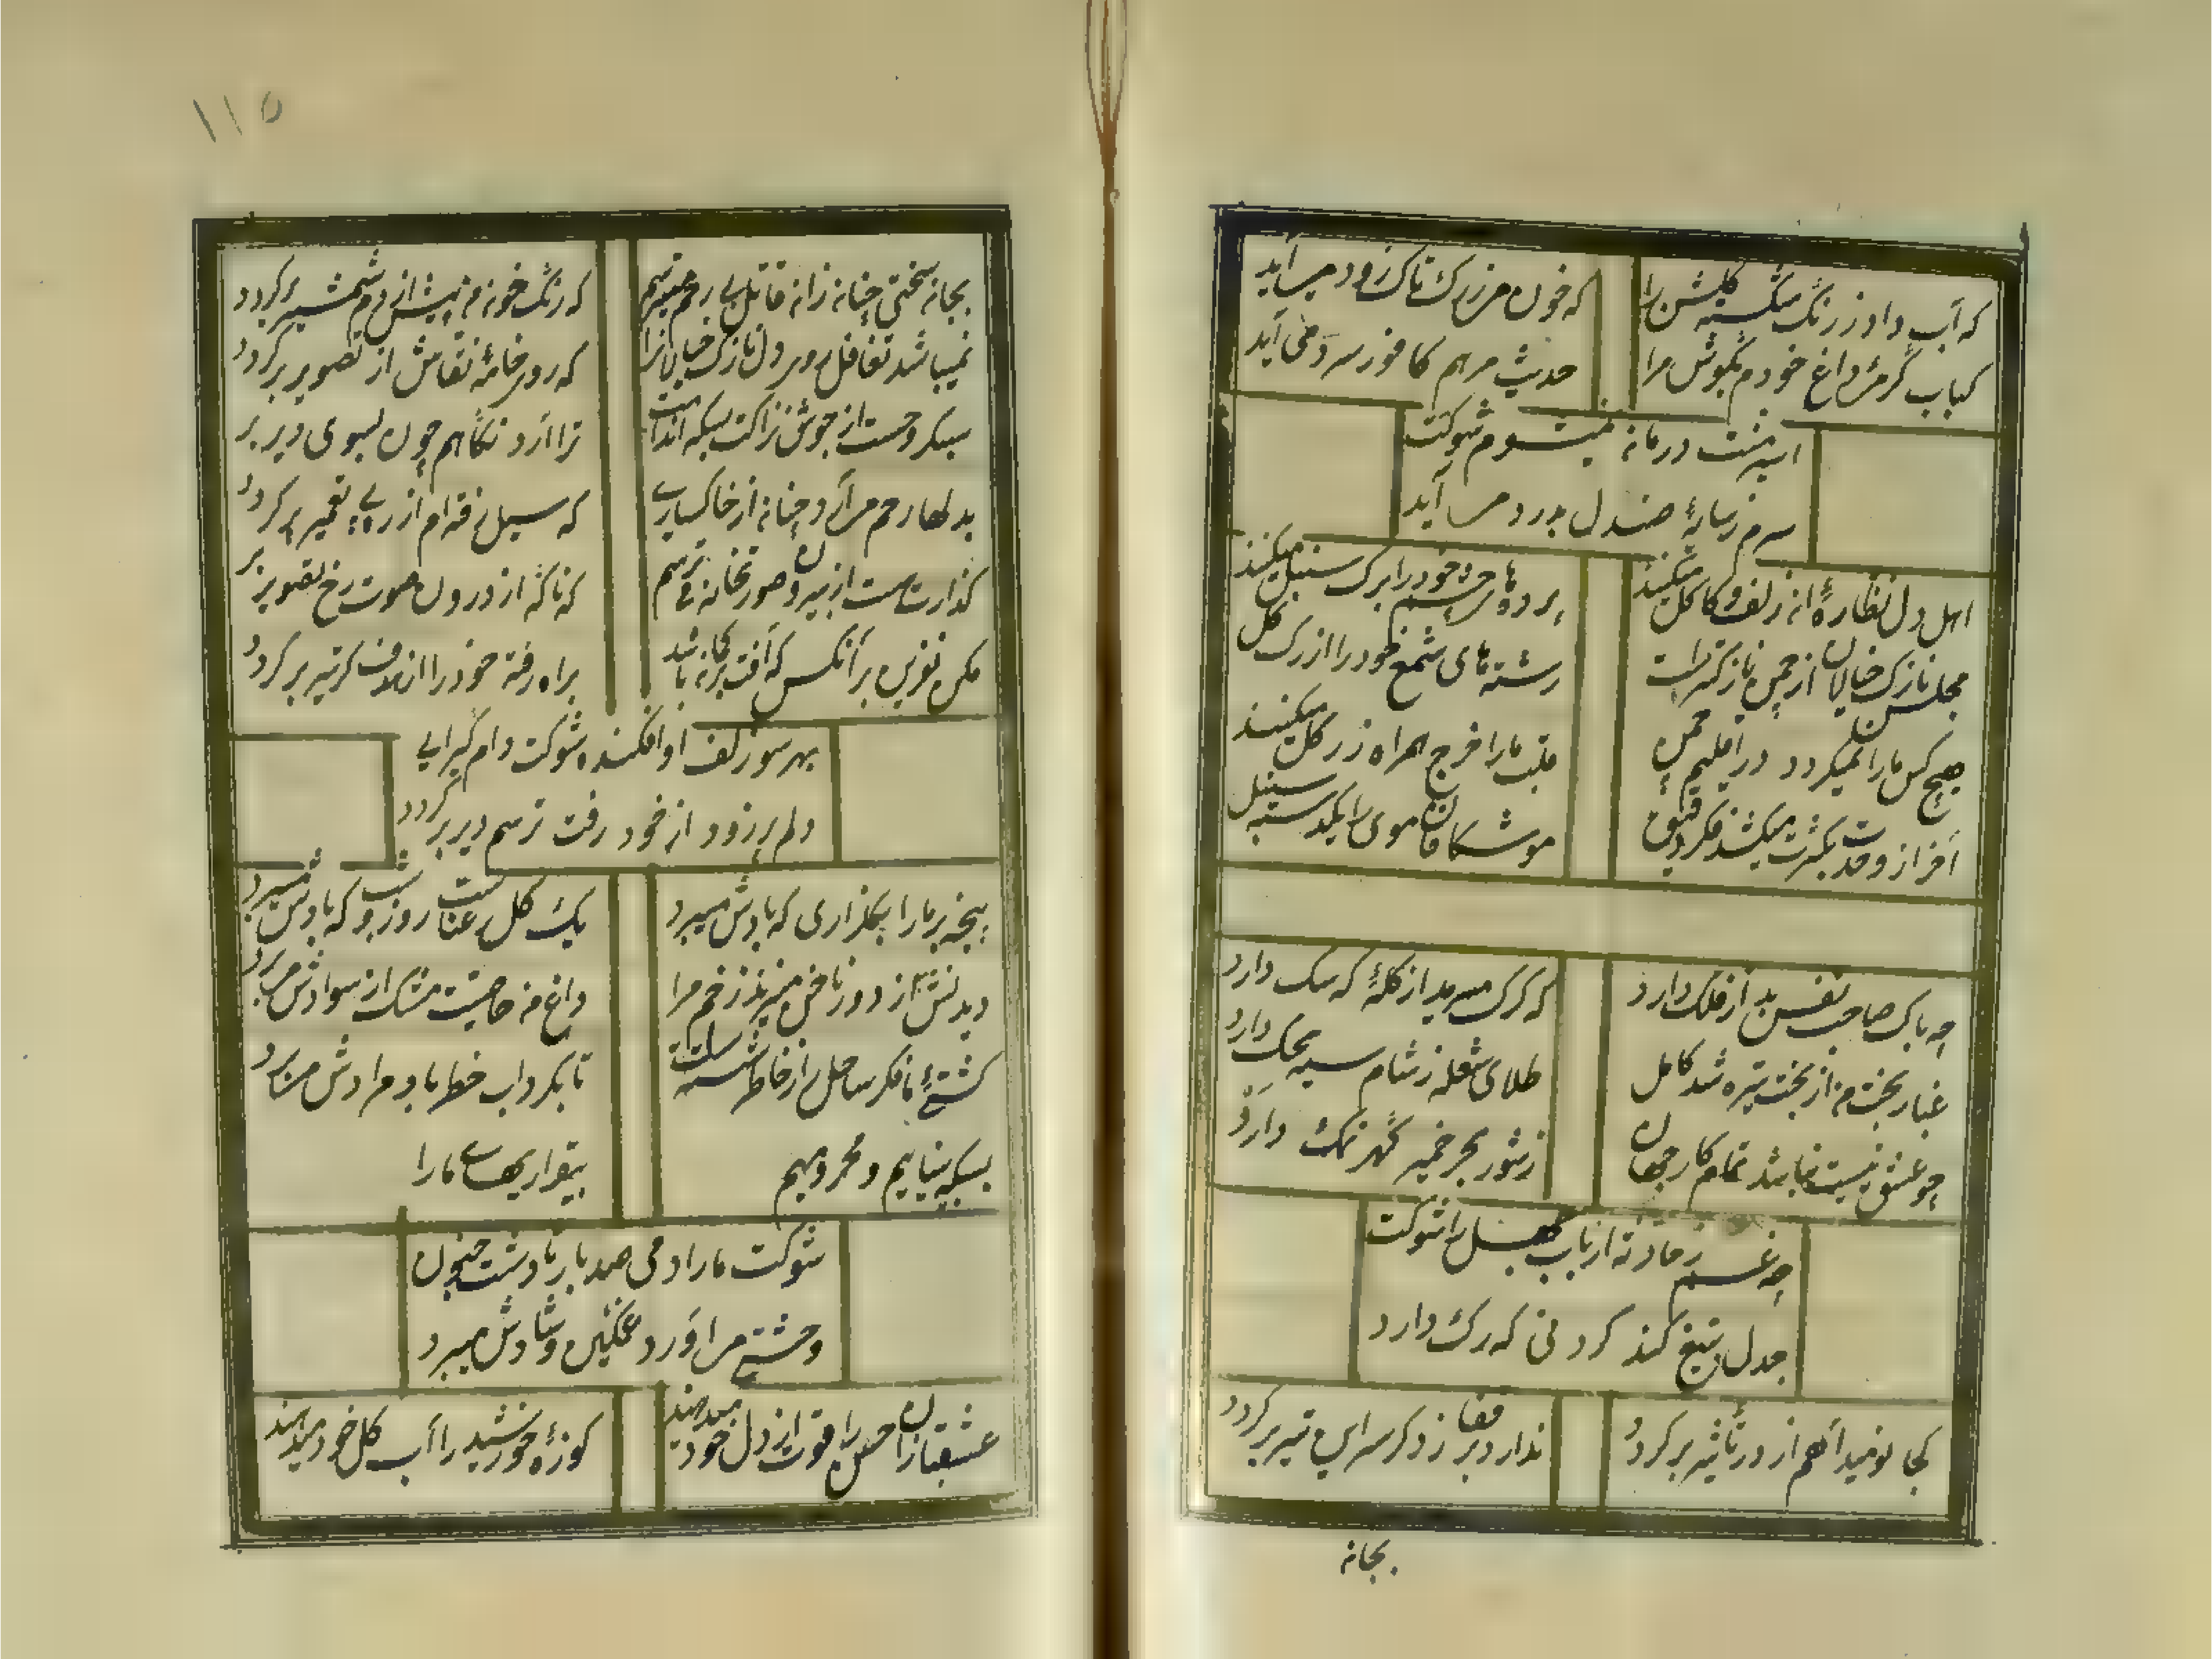 که آب داد ز رنگ شکسته گلشن را
که خون من ز رگ تاک زود می آید
کباب گرمی داغ خودم بگوش مرا
حدیث مرهم کافور سرد می آید
اسیر منت درمان نمیشوم شوکت
سرم ز سایهٔ صندل بدرد می آید
اهل دل نظارهٔ از زلف و کاکل میکنند
پرده های چشم خود را برک سنبل میکنند
مجلس نازک خیالان از چمن نازکتر است
رشته های شمع خود را از رک گل
هیچ کس مارا نمیگردد در اقلیم چمن
قلب مارا خرج همراه زر گل میکنند
آخر از وحدت بکثرت میکشد فکر دقیق
موشکافان موی را یکدسته سنبل
چه باک صاحب نفس بد از فلک دارد
که گرگ میرمد از گلهٔ که سگ دارد
غبار بخت من از بخت تیره شد کامل
طلای شعله ز شام سیه محک دارد
چو عشق نیست نباشد تمام کار جهان
ز شور بحر خمیر گهر نمک دارد
چه غم ز حادثه ارباب جهل را شوکت
جدل بتیغ کند گردنی که رگ دارد
کجا نومید آهم از در تأثیر برگردد
ندارد بر قفا زور کسی این تیر برگردد
بجان
۱۱۵
بجان سختی چنان زان قاتل بی رحم میترسم
که رنگ خون من پیش از دم شمشیر برگردد
نمیباشد تغافل در دل نازک خیالانرا
که روی خامهٔ نقاش از تصویر برگردد
سبکروحست از جوش نزاکت بسکه اندامت
ترا آرد نگاهم چون بسوی دیر بر
بدلها رحم میآرد چنان از خاکساری
که سیل رفته ام از پی تعمیر برگردد
گذارت مست از بیرون صورتخانه می ترسم
که ناگه از درون صورت رخ تصویر بر
مکن نفرین بر آنکس که آفت بر کجان باشد
براه رفته خود را از هدف گر تیر برگردد
بهر سو زلف او افکنده شوکت دام گیرایی
دلم پر زود از خود رفت ترسم دیر برگردد
بیخبر مارا بگلزاری که یادش میبرد
یک گل رعناست روز و شب که بادش میبرد
دیدنش از دور ناخن میزند زخم مرا
داغ من خاصیت مشک از سوادش میبرد
کشتی ما فکر ساحل را ز خاطر شسته است
تا بگرداب خطر باد مرادش میبرد
بسکه بیتابیم و محرومیم
بیقراریهای مارا
شوکت مارا دمی صد بار تا دشت جنون
وحشتی می آورد غمگین و شادش میبرد
عشقبازان حسن را قوت از دل خود میدهند
کوزهٔ خورشید را آب گل خود میدهند